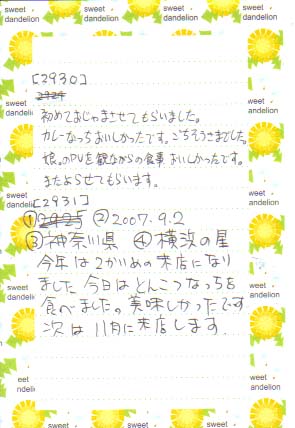 sweet dandelion
sweet dandelion
sweet dandelion
[2930]
2929
初めておじゃまさせてもらいました。
カレーなっちおいしかったです。ごちそうさまでした。
娘。のPVを観ながらの食事おいしかったです。
またよらせてもらいます。
[2931]
①2925 ②2007.9.2
③神奈川県 ④横浜の星
今年は2かいめの来店になり
ました 今日はとんこつなっちを
食べました。美味しかったです
次は11月に来店します
sweet dandelion
sweet dandelion
sweet dandelion